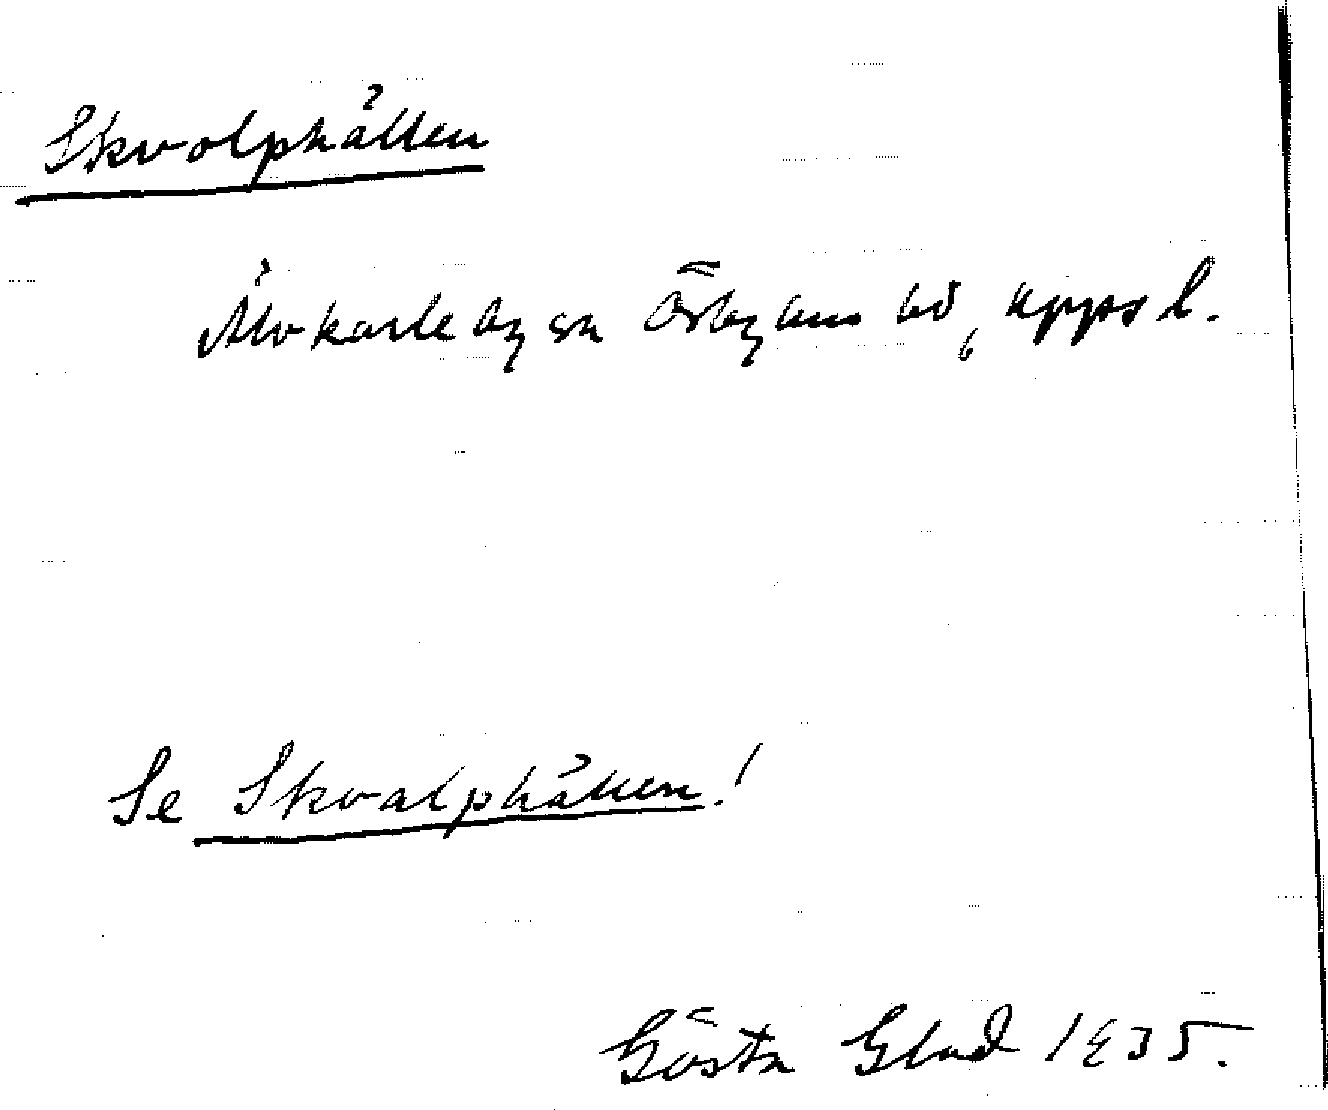 Skvolphällen
Älvkarleby sn Örbyhus hd, Upps l.
Se Skvalphällen!
Gösta Glad 1935.